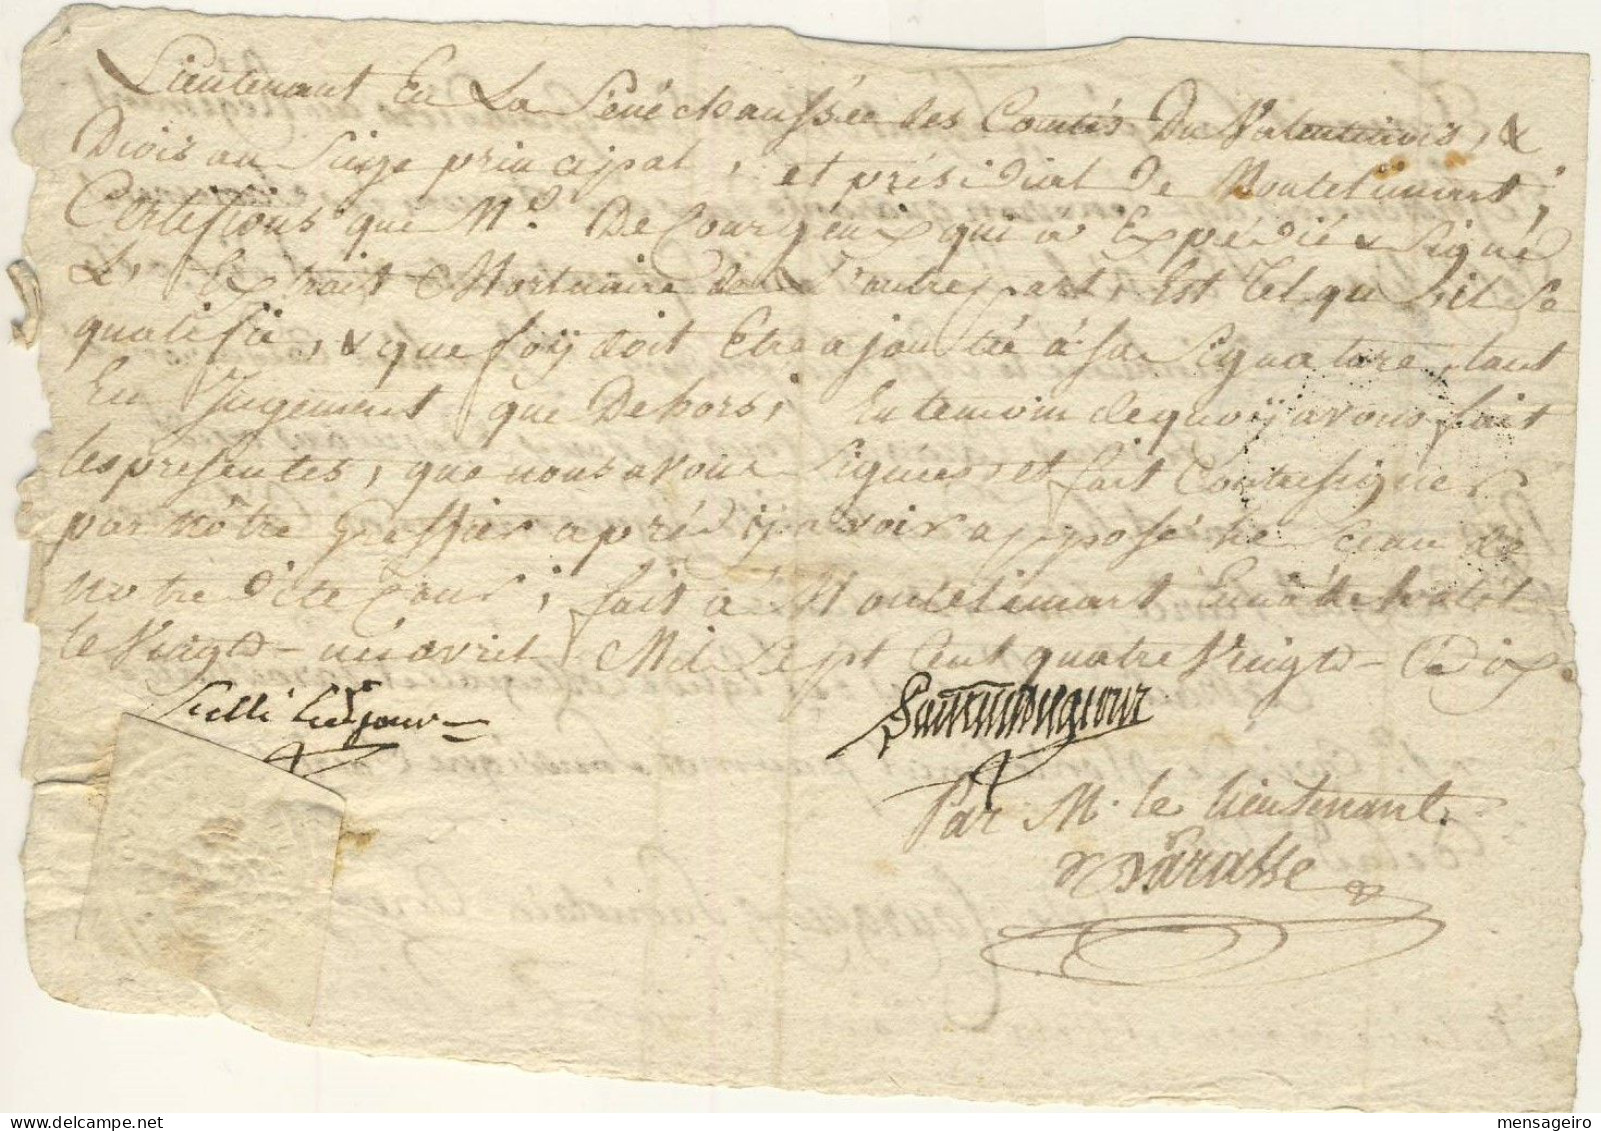 Lieutenant En La Sénéchaussée des Comtés Du Valentinois, &
Diois au Siège principal, et présidial de Montelimart,
Certifions que Mr. De Courgeux qui a Expédié & Signé
L'Extrait Mortuaire de L'autre part, Est Tel qu'il Se
qualifie, & que foÿ doit Etre ajoutée à Sa Signature, tant
En Jugement que Dehors, En temoin de quoÿ avons fait
les presentes, que nous avons Signées, et fait Contresigner
par nôtre Greffier après ÿ avoir apposé le Sceau de
Notre dite Cour, fait à Montelimart En nôtre hotel
le Vingt-un avril Mil Sept Cent quatre Vingt-dix.
Scellé
Par M. le Lieutenant.
Barasse
mensageiro